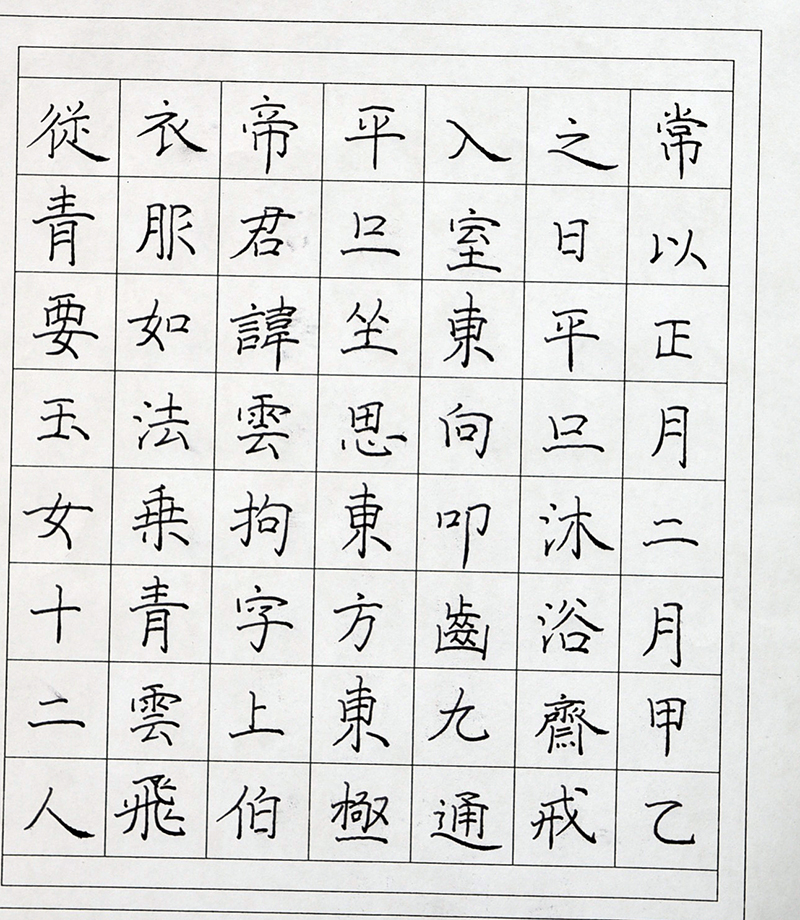 常以正月二月甲乙
之日平旦沐浴齋戒
入室東向叩齒九通
平旦坐思東方東極
帝君諱雲拘字上伯
衣服如法乗青雲飛
從青要玉女十二人